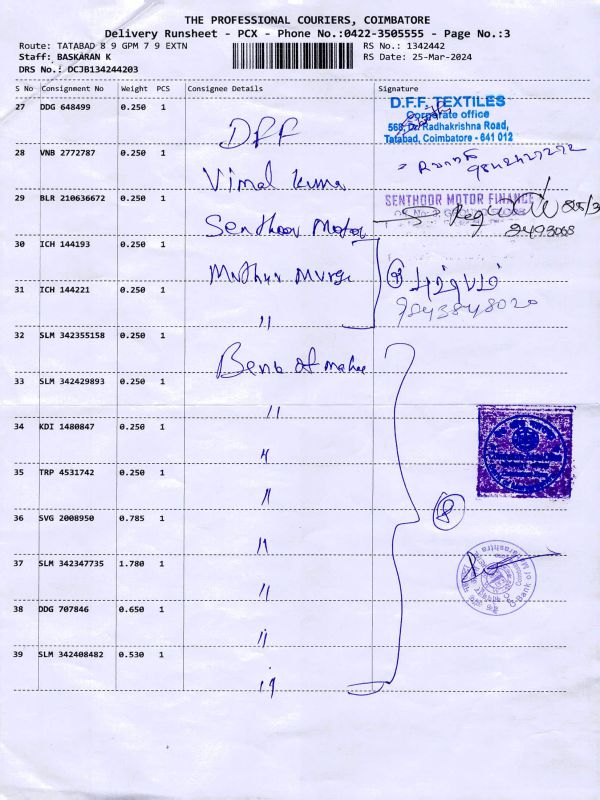 THE PROFESSIONAL COURIERS, COIMBATORE
Delivery Runsheet - PCX - Phone No.:0422-3505555 - Page No.:3
Route: TATABAD 8 9 GPM 7 9 EXTN
RS No.: 1342442
Staff: BASKARAN K
RS Date: 25-Mar-2024
DRS No.: DCJB134244203
S No Consignment No Weight PCS Consignee Details Signature
27 DDG 648499 0.250 1 DFF
D.F.F. TEXTILES
Corporate office
568, Dr. Radhakrishna Road,
Tatabad, Coimbatore - 641 012
28 VNB 2772787 0.250 1 Vimal Kumar
29 BLR 210636672 0.250 1 Senthoor Motor
SENTHOOR MOTOR FINANCE
30 ICH 144193 0.250 1 Muthu Murga
31 ICH 144221 0.250 1 〃
9843848020
32 SLM 342355158 0.250 1 Bank of Maha
33 SLM 342429893 0.250 1 〃
34 KDI 1480847 0.250 1 〃
35 TRP 4531742 0.250 1 〃
36 SVG 2008950 0.785 1 〃
8
37 SLM 342347735 1.780 1 〃
Bank of Maharashtra
38 DDG 707846 0.650 1 〃
39 SLM 342408482 0.530 1 〃